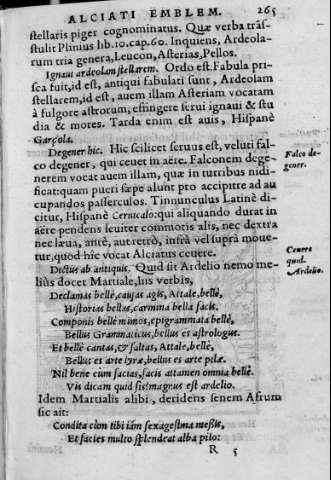 ALCIATI EMBLEM. 265
stellaris piger cognominatus. Quæ verba trãs-
stulit Plinius lib. 10. cap. 60. Inquiens, Ardeola-
rum tria genera, Leucon, Asterias, Pellos.
Ignaui ardeolam stellarem. Ordo est. Fabula pri-
sca fuit, id est, antiqui fabulati sunt, Ardeolam
stellarem, id est, auem illam Asteriam vocatam
à fulgore astrorum, effingere serui ignaui & stu
dia & mores. Tarda enim est auis, Hispanè
Garçola.
Degener hic. Hic scilicet seruus est, veluti fal-
co degener, qui ceuet in aëre. Falconem dege-
nerem vocat auem illam, quæ in turribus nidi-
ficat: quam pueri sæpe alunt pro accipitre ad au
cupandos passerculos. Tinnunculus Latinè di-
citur, Hispanè Cernicalo: qui aliquando durat in
aëre pendens leuiter commotis alis, nec dextra
nec læua, antè, aut retrò, infrà vel suprà moue-
tur, quod hîc vocat Alciatus ceuere.
Falco de-
gener.
Ceuere
quid.
Ardelio.
Dictus ab antiquis. Quid sit Ardelio nemo me-
liùs docet Martiale, his verbis,
Declamas bellè, causas agis, Attale, bellè,
Historias bellas, carmina bella facis.
Componis bellè mimos, epigrammata bellè,
Bellus Grammaticus, bellus es astrologus.
Et bellè cantas, & saltas, Attale, bellè,
Bellus es arte lyræ, bellus es arte pilæ.
Nil bene cùm facias, facis attamen omnia bellè.
Vis dicam quid sis? magnus est ardelio.
Idem Martialis alibi, deridens senem Afrum
sic ait:
Condita cùm tibi iàm sexagesima messis,
Et facies multo splendeat alba pilo:
R 5